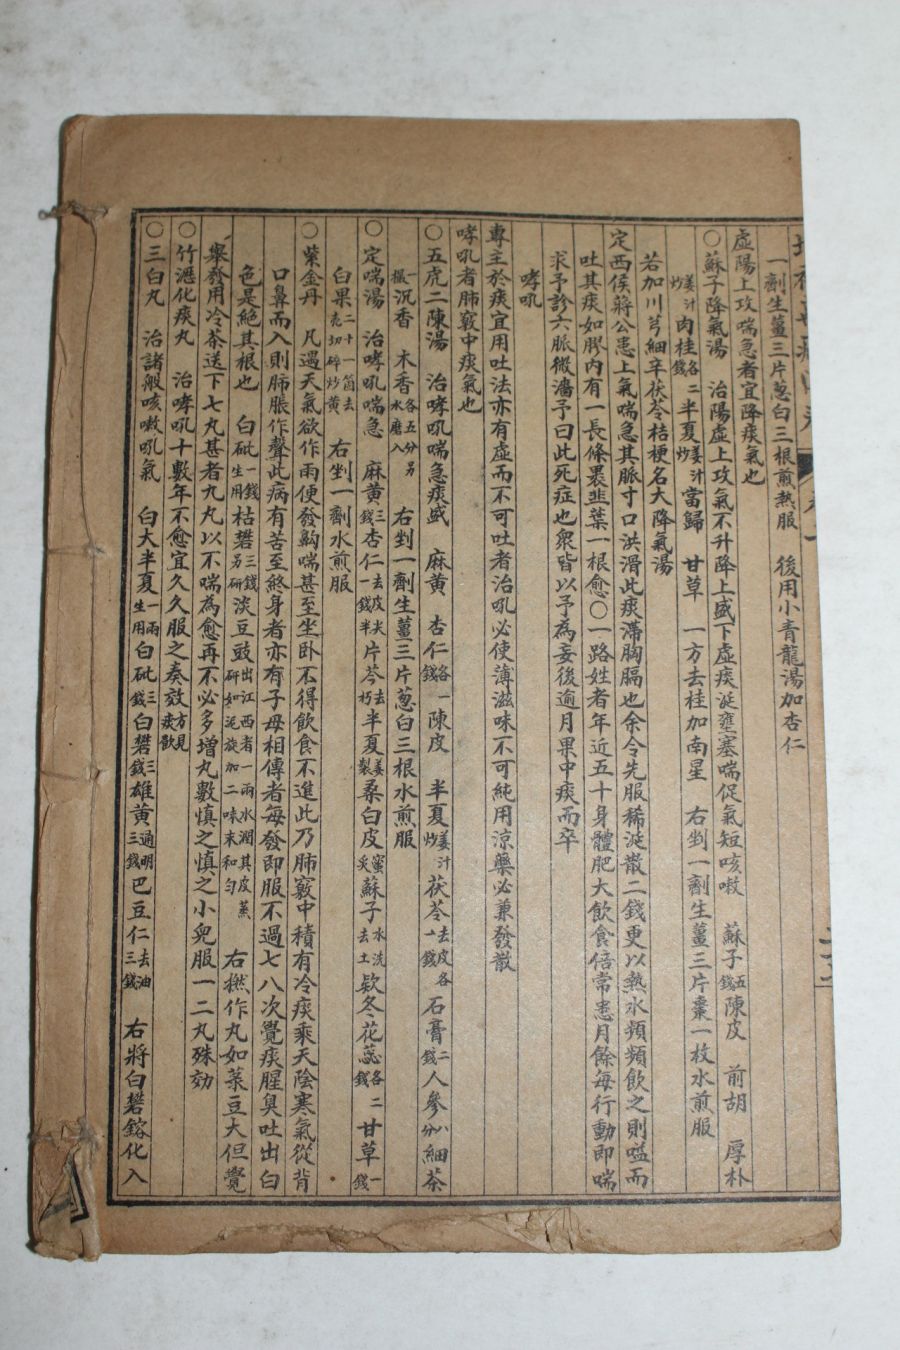 一劑生薑三片葱白三根煎熱服　後用小青龍湯加杏仁
虛陽上攻喘急者宜降痰氣也
〇蘇子降氣湯　治陽虛上攻氣不升降上盛下虛痰涎壅塞喘促氣短咳嗽　蘇子五錢陳皮　前胡　厚朴
薑汁炒肉桂各二錢半夏薑汁炒當歸　甘草　一方去桂加南星　右剉一劑生薑三片棗一枚水煎服
若加川芎細辛茯苓桔梗名大降氣湯
定西侯蔣公患上氣喘急其脈寸口洪滑此痰滯胸膈也余令先服稀涎散二錢更以熱水頻頻飲之則嗌而
吐其痰如膠內有一長條褁韭葉一根愈〇一路姓者年近五十身體肥大飲食倍常患月餘每行動即喘
求予診六脈微濇予曰此死症也衆皆以予為妄後逾月果中痰而卒
哮吼
專主於痰宜用吐法亦有虛而不可吐者治吼必使薄滋味不可純用涼藥必兼發散
哮吼者肺竅中痰氣也
〇五虎二陳湯　治哮吼喘急痰盛　麻黃　杏仁各一錢陳皮　半夏薑汁炒茯苓去皮各一錢石膏二錢人參八分細茶
一撮沉香　木香各五分另水磨入　右剉一劑生薑三片葱白三根水煎服
〇定喘湯　治哮吼喘急　麻黃三錢杏仁去皮尖一錢半片芩去朽半夏薑製桑白皮蜜炙蘇子水洗去土欵冬花蕊各二錢甘草一錢
白果二十一箇去壳切碎炒黃　右剉一劑水煎服
〇紫金丹　凡遇天氣欲作雨便發齁喘甚至坐臥不得飲食不進此乃肺竅中積有冷痰乘天陰寒氣從背
口鼻而入則肺脹作聲此病有苦至終身者亦有子母相傳者每發即服不過七八次覺痰腥臭吐出白
色是絕其根也　白砒一錢生用枯礬三錢另研淡豆豉出江西者一兩水潤其皮蒸研如泥旋加二味末和勻　右撚作丸如菉豆大但覺
舉發用冷茶送下七丸甚者九丸以不喘為愈再不必多增丸數慎之慎之小兒服一二丸殊効
〇竹瀝化痰丸　治哮吼十數年不愈宜久久服之奏效方見痰飲
〇三白丸　治諸般咳嗽吼氣　白大半夏一兩生用白砒三錢白礬三錢雄黃通明三錢巴豆仁去油三錢　右將白礬鎔化入